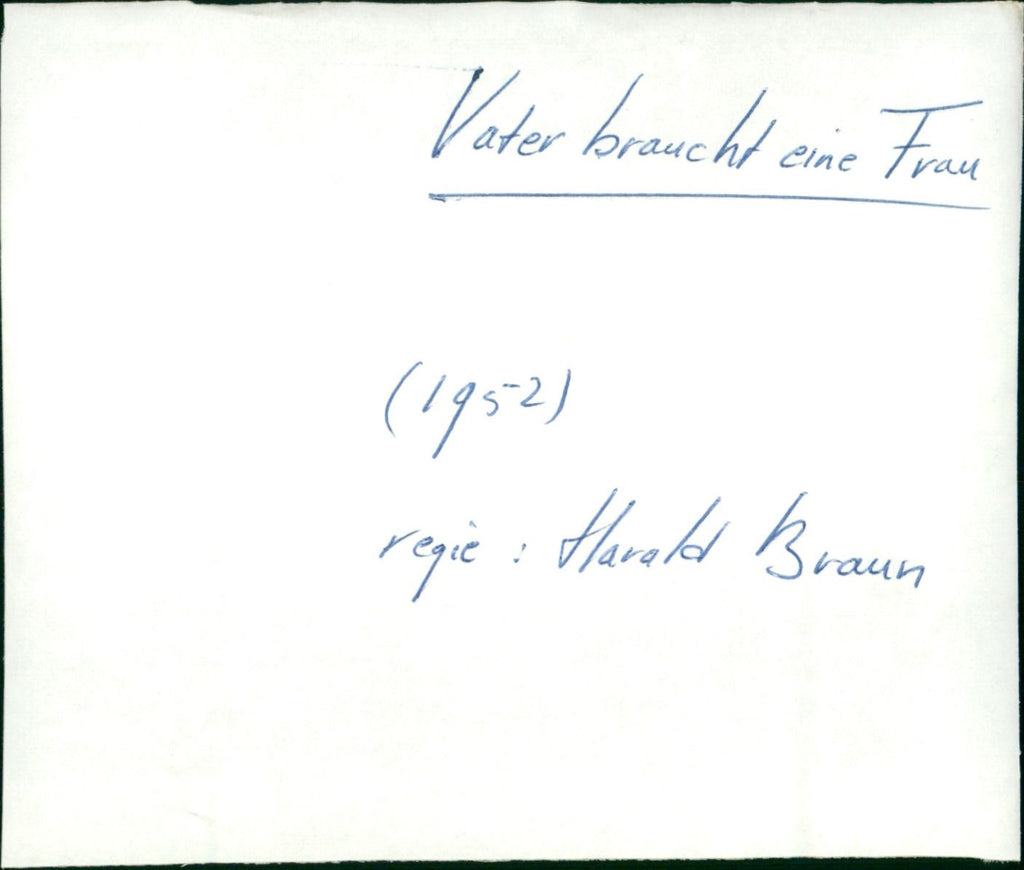 Vater braucht eine Frau
(1952)
regie : Harald Braun